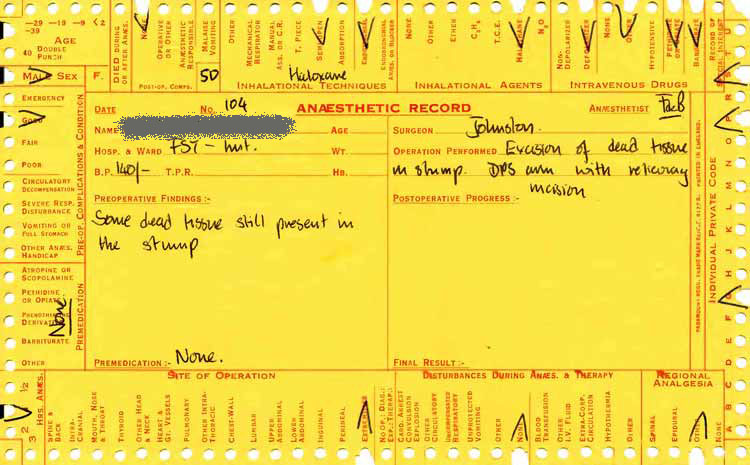 -29 -19 -9 <2
-39
AGE
40 DOUBLE
PUNCH
MALE SEX F.
DIED DURING
OR AFTER ANÆS.
NONE
OPERATIVE
OR OTHER
ANÆSTHETIC
RESPONSIBLE
MALAISE
VOMITING
OTHER
POST-OP. COMPS.
50
MECHANICAL
RESPIRATOR
MANUAL
ASS. OR C.R.
T. PIECE
SEMI-OPEN
ABSORPTION
ENDOTRACHEAL
Haloxane
INHALATIONAL TECHNIQUES
NONE
OTHER
ETHER
C₂H₄
T.C.E.
HALOTHANE
N₂O
INHALATIONAL AGENTS
NON-
DEPOLARIZER
DEPOLARIZER
NONE
OTHER
HYPOTENSIVE
PETHIDINE
OR OPIATE
BARBITURATE
INTRAVENOUS DRUGS
RECORD OF
SPECIAL INTEREST
EMERGENCY
GOOD
FAIR
POOR
CIRCULATORY
DECOMPENSATION
SEVERE RESP.
DISTURBANCE
VOMITING OR
FULL STOMACH
OTHER ANÆS.
HANDICAP
PRE-OP. COMPLICATIONS & CONDITION
ATROPINE OR
SCOPOLAMINE
PETHIDINE
OR OPIATE
PHENOTHIAZINE
DERIVATIVE
BARBITURATE
OTHER
None
PREMEDICATION
DATE No. 104 ANÆSTHETIC RECORD ANÆSTHETIST
NAME AGE
HOSP. & WARD FST - hut. WT.
B.P. 140/- T.P.R. HB.
PREOPERATIVE FINDINGS :-
Some dead tissue still present in
the stump
PREMEDICATION :- None.
SURGEON Johnston.
OPERATION PERFORMED Excision of dead tissue
in stump. DPS arm with relieving
incision
POSTOPERATIVE PROGRESS :-
FINAL RESULT :-
PRINTED IN ENGLAND.
INDIVIDUAL PRIVATE CODE
SITE OF OPERATION
3 2 1½ ½
HRS. ANÆS.
SPINE &
BACK
INTRA-
CRANIAL
MOUTH, NOSE
& THROAT
THYROID
OTHER HEAD
& NECK
HEART &
GT. VESSELS
PULMONARY
OTHER INTRA-
THORACIC
CHEST-WALL
LUMBAR
UPPER
ABDOMINAL
LOWER
ABDOMINAL
INGUINAL
PERINEAL
EXTREMITIES
DISTURBANCES DURING ANÆS. & THERAPY
CARD. ARREST
CONVULSION
EXPLOSION
OTHER
CIRCULATORY
UNEXPECTED
RESPIRATORY
UNPROTECTED
VOMITING
OTHER
NONE
BLOOD
TRANSFUSION
OTHER
I.V. FLUID
EXTRA-CORP.
CIRCULATION
HYPOTHERMIA
OTHER
REGIONAL
ANALGESIA
SPINAL
EPIDURAL
OTHER
NONE